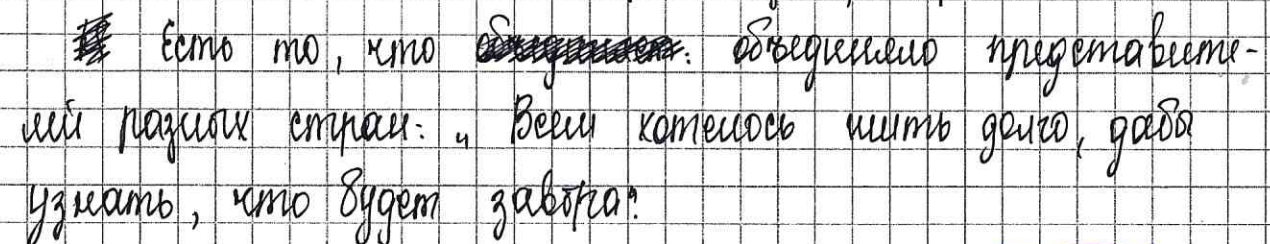 Есть то, что объединяло представите-
лей разных стран: „ Всем хотелось жить долго, дабы
узнать, что будет завтра?